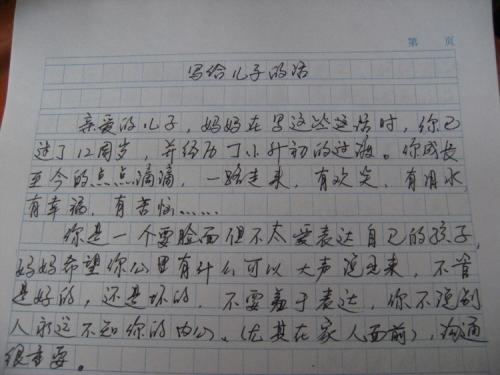 第 页
写给儿子的话
亲爱的儿子，妈妈在写这些话时，你已
过了12周岁，并经历了小升初的过渡。你成长
至今的点点滴滴，一路走来，有欢笑，有泪水，
有幸福，有苦恼……
你是一个要脸面但不太爱表达自己的孩子，
妈妈希望你心里有什么可以大声说出来，不管
是好的，还是坏的，不要羞于表达，你不说别
人永远不知你的内心。（尤其在家人面前），沟通
很重要。